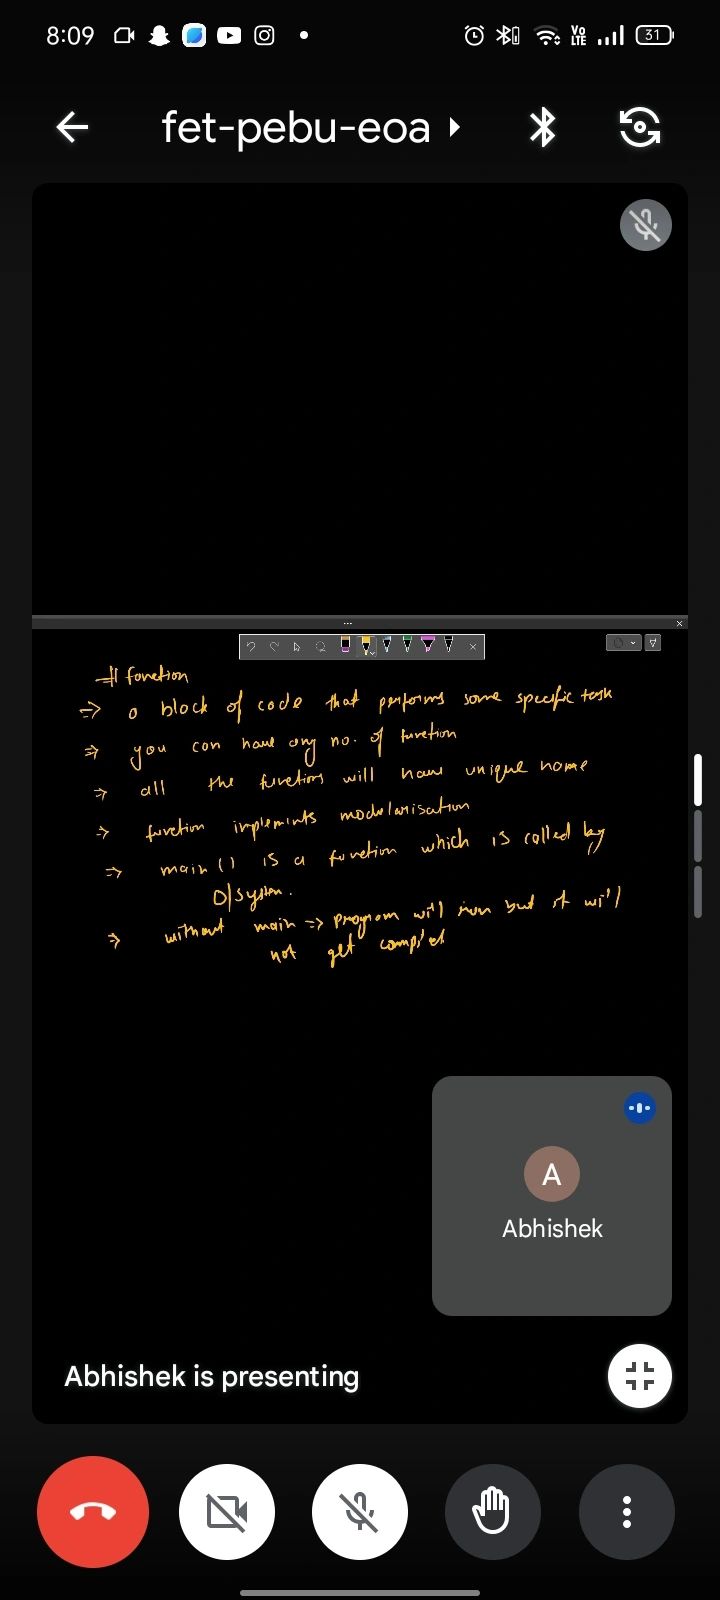 8:09
Vo LTE
31
fet-pebu-eoa
# function
=> a block of code that performs some specific task
=> you can have any no. of function
=> all the functions will have unique name
=> function implements modularisation
=> main() is a function which is called by
O/system.
=> without main => program will run but it will
not get compiled
A
Abhishek
Abhishek is presenting